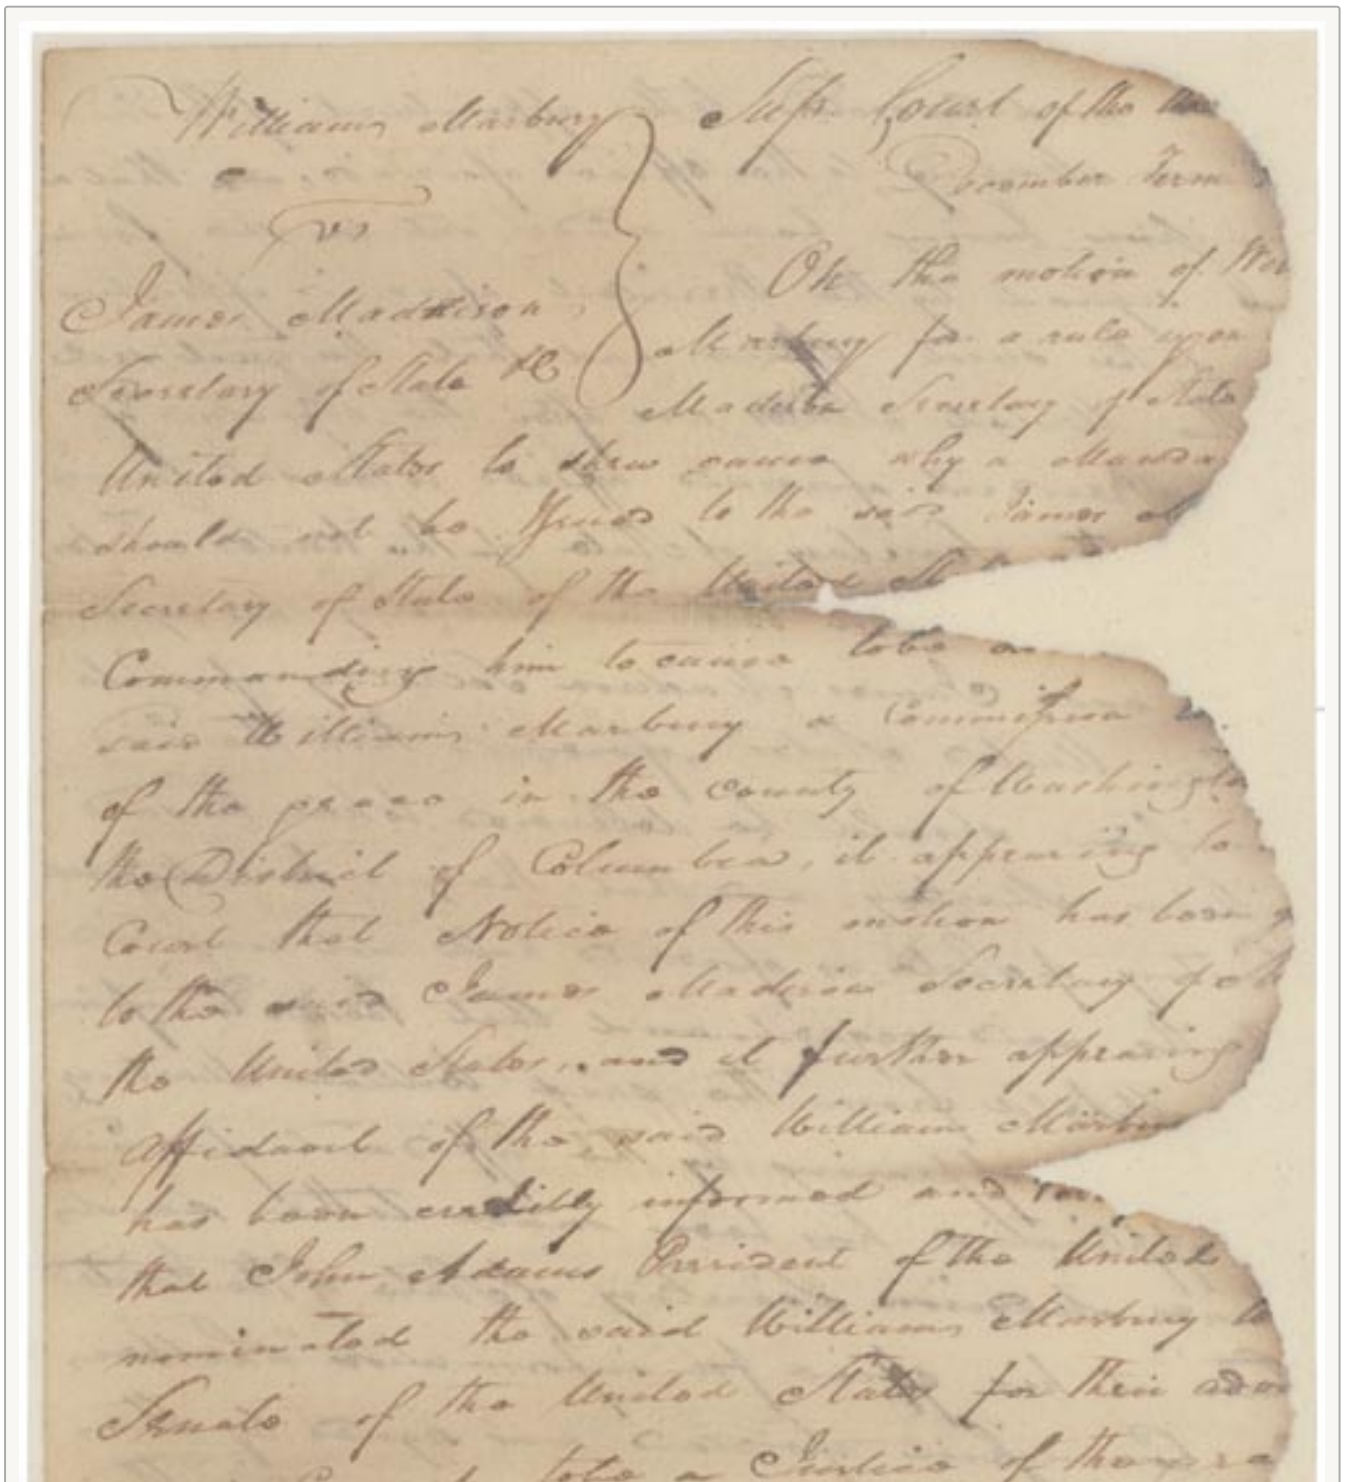 William Marbury
vs
James Maddison
Secretary of State &c
Supr. Court of the
December Term
On the motion of
Marbury for a rule upon
Madison Secretary of State
United States to shew cause why a
should not be Issued to the said James
Secretary of State of the United
Commanding him to cause to be
said William Marbury a Commission
of the peace in the county of Washington
the District of Columbia, it appearing to
Court that Notice of this motion has been
to the said James Madison Secretary of
the United States, and it further appearing
affidavit of the said William
has been credibly informed and
that John Adams President of the United
nominated the said William Marbury to
Senate of the United States for their
to be a Justice of the